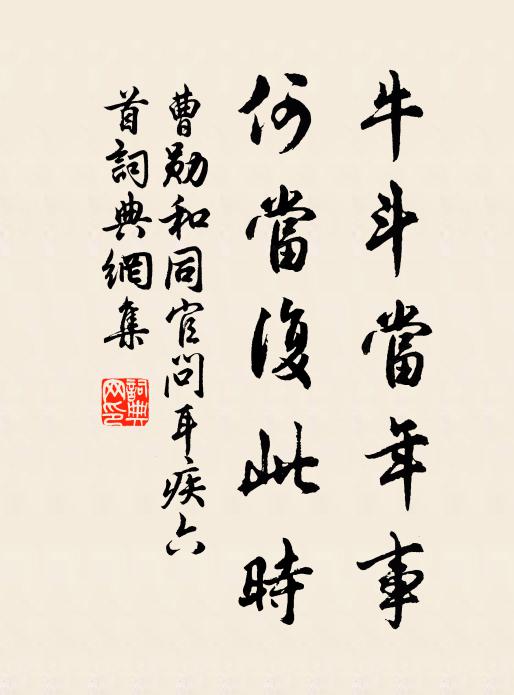 牛斗當年事
何當復此時
曹勛和同官問耳疾六
首詞典網集
詞典网印